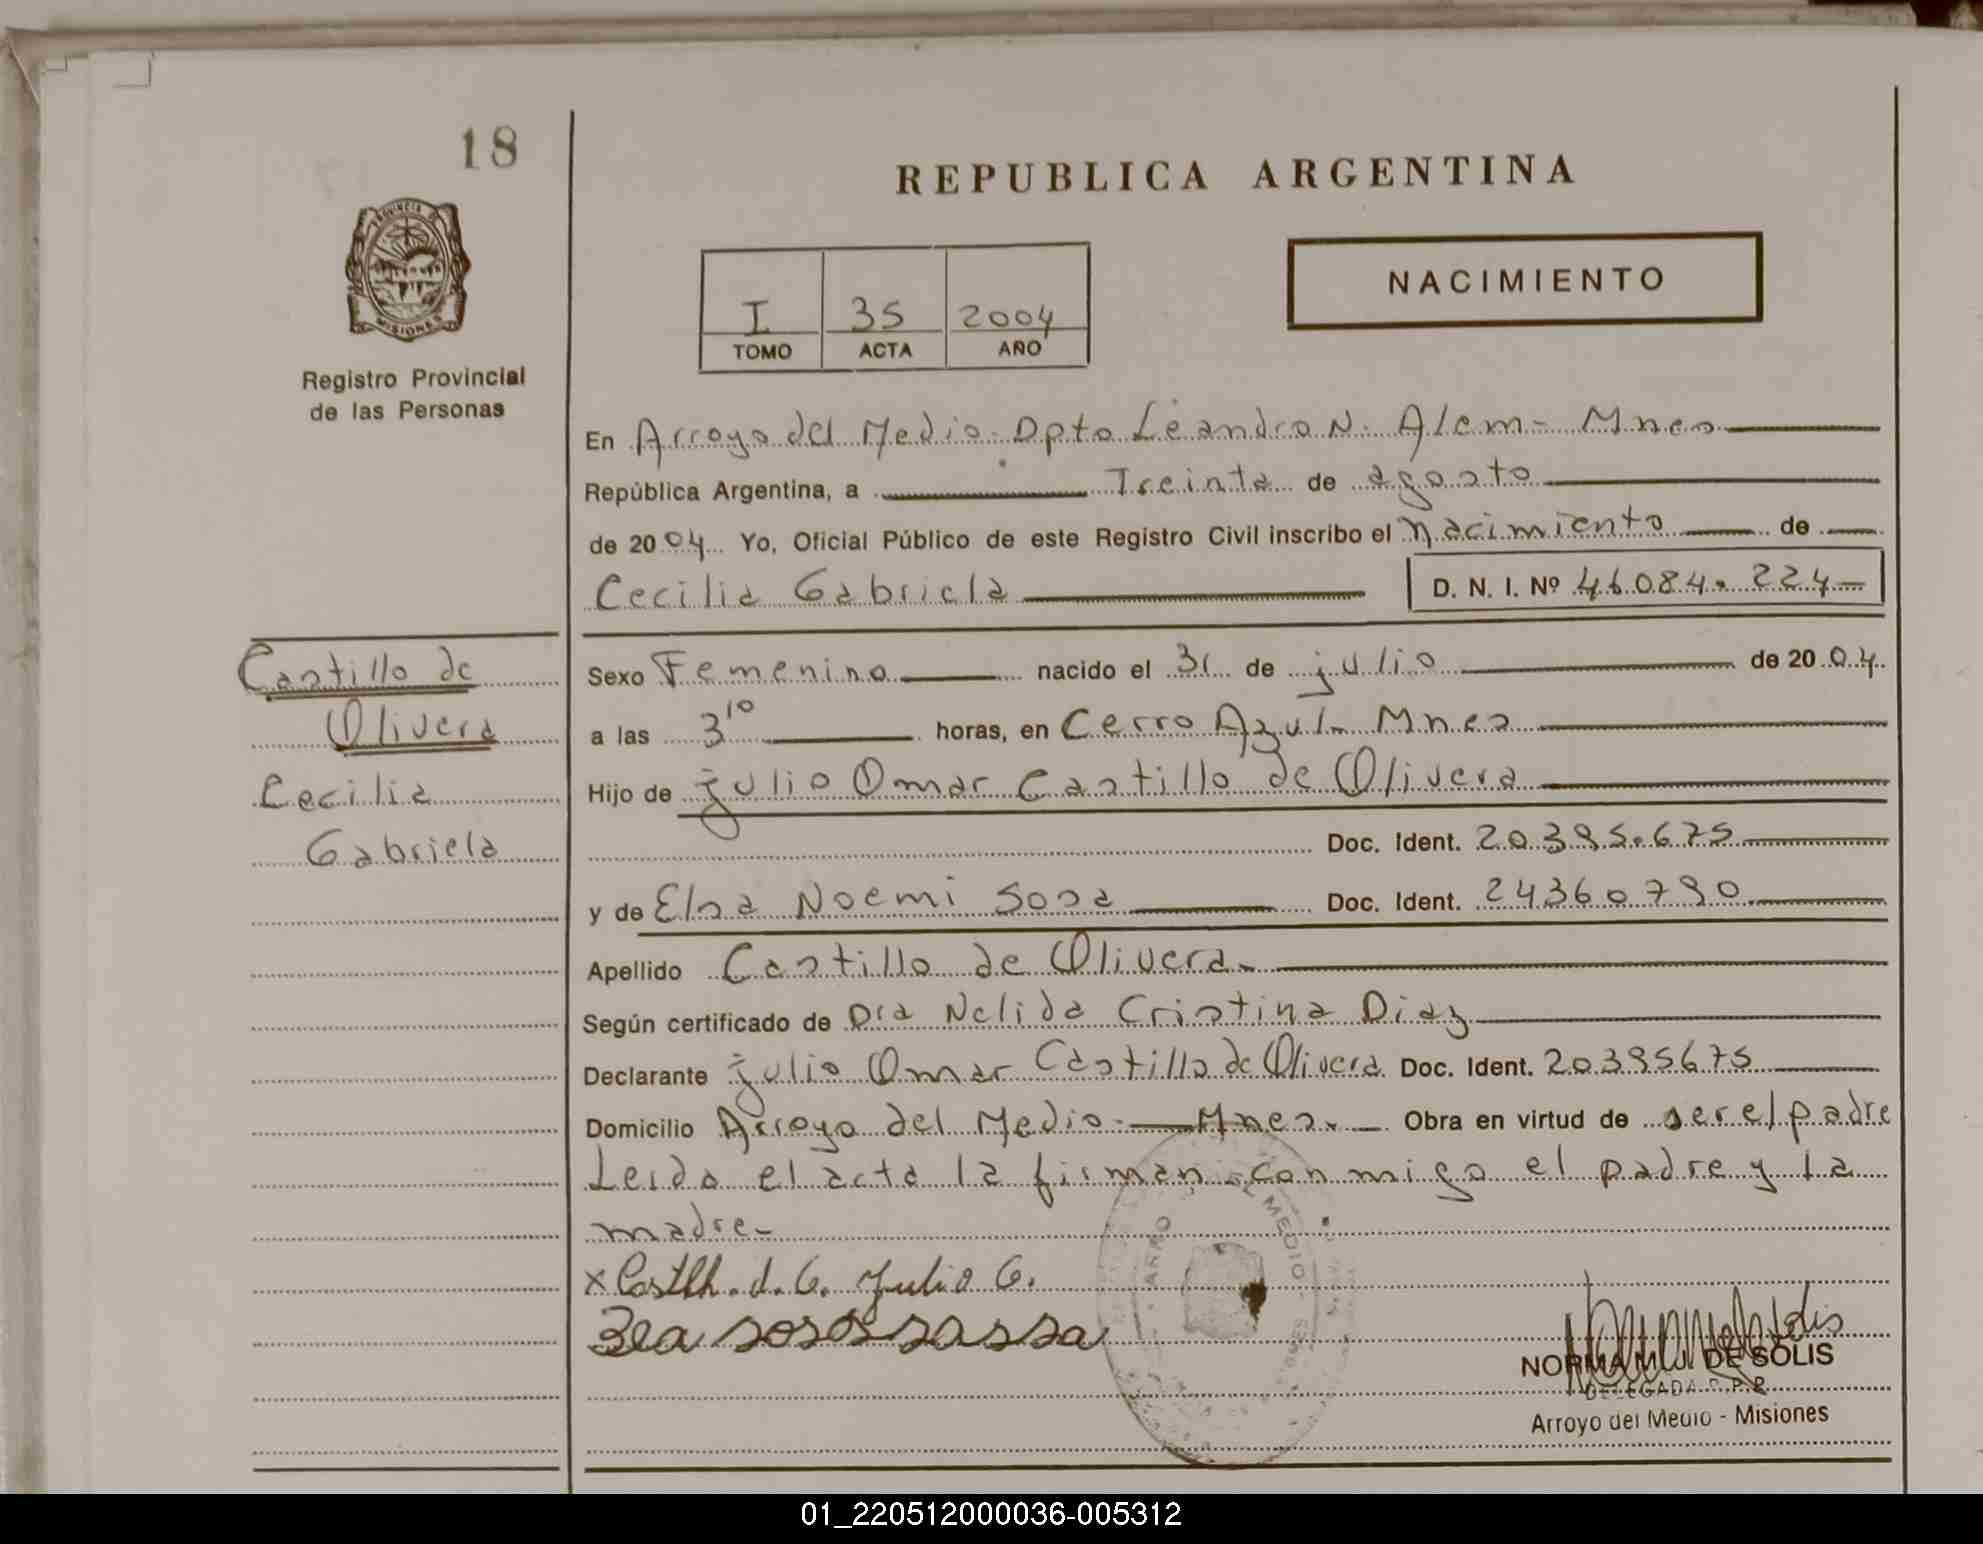 18
REPUBLICA ARGENTINA
PROVINCIA DE
MISIONES
NACIMIENTO
I 35 2004
TOMO ACTA AÑO
Registro Provincial
de las Personas
En Arroyo del Medio. Dpto Leandro N. Alem - Mnes
República Argentina, a Treinta de agosto
de 2004 Yo, Oficial Público de este Registro Civil inscribo el nacimiento de
Cecilia Gabriela D. N. I. Nº 46084.224
Castillo de
Olivera
Cecilia
Gabriela
Sexo Femenino nacido el 31 de julio de 2004
a las 3 10 horas, en Cerro Azul - Mnes
Hijo de Julio Omar Castillo de Olivera
Doc. Ident. 20.395.675
y de Elsa Noemi Sosa Doc. Ident. 24360790
Apellido Castillo de Olivera
Según certificado de Dra Nelida Cristina Diaz
Declarante Julio Omar Castillo de Olivera Doc. Ident. 20395675
Domicilio Arroyo del Medio - Mnes. Obra en virtud de ser el padre
Leida el acta la firman conmigo el padre y la
madre-
x d. Julio
NORMA DE SOLIS
DELEGADA R.P.P.
Arroyo del Medio - Misiones
01_220512000036-005312